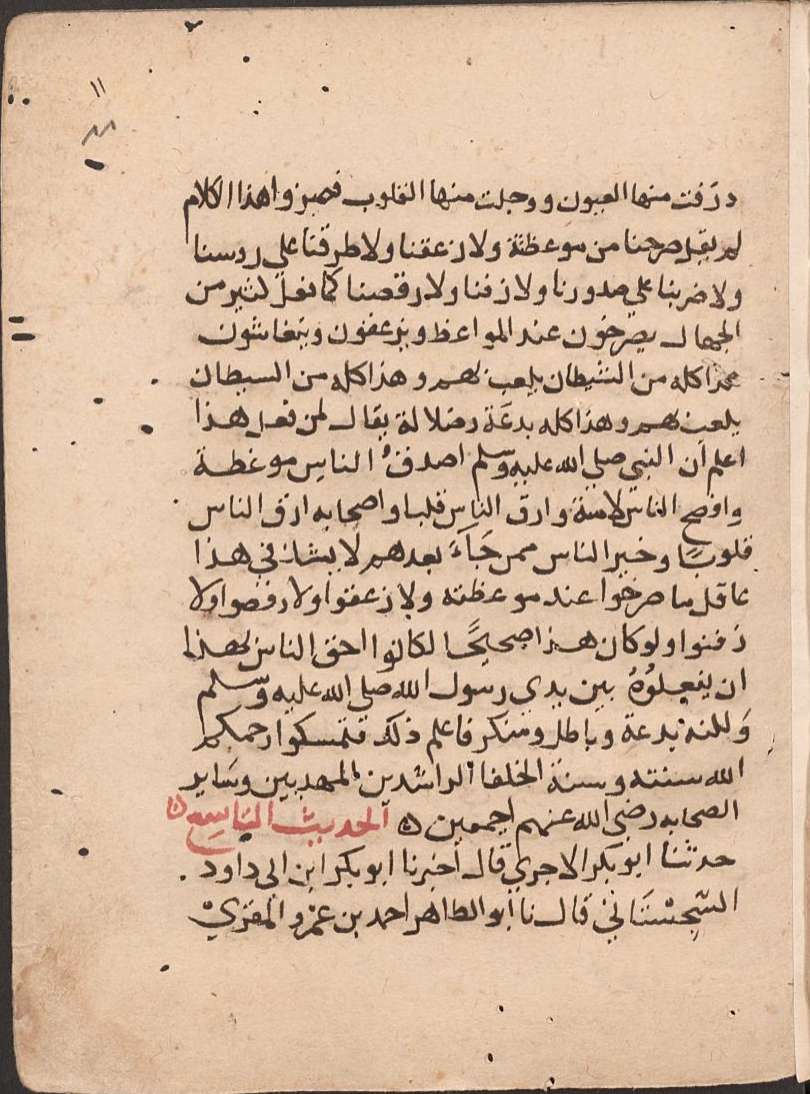 ١١
ذرفت منها العيون ووجلت منها القلوب فميزوا هذا الكلام
لم يقل صرخنا من موعظة ولا زعقنا ولا طرقنا علي روسنا
ولا ضربنا علي صدورنا ولا زفنا ولا رقصنا كما فعل كثير من
الجهال يصرخون عند المواعظ ويزعقون ويتغاشون
هذا كله من الشيطان يلعب بهم وهذا كله من الشيطان
يلعب بهم وهذا كله بدعة وضلالة يقال لمن فعل هذا
اعلم أن النبي صلي الله عليه وسلم اصدق الناس موعظة
وانصح الناس لامته وارق الناس قلبا واصحابه ارق الناس
قلوبًا وخير الناس ممن جَاءَ بعدهم لا يشك في هذا
عاقل ما صرخوا عند موعظته ولا زعقوا ولا رقصوا ولا
زفنوا ولو كان هذا صحيحًا لكانوا احق الناس بهذا
ان يفعلوُهُ بين يدي رسول الله صلي الله عليه وسلم
وَلكنه بدعة وباطل ومنكر فاعلم ذلك فتمسكوا رحمكم
الله سنته وسنة الخلفا الراشدين المهديين وسَاير
الصحابه رضي الله عنهم اجمعين ۞ الحديث التاسع ۞
حدثنا ابو بكر الاجري قال أخبرنا ابو بكر ابن ابي داود
السِّجِسْتَاني قال نا أبو الطاهر احمد بن عمرو المقري